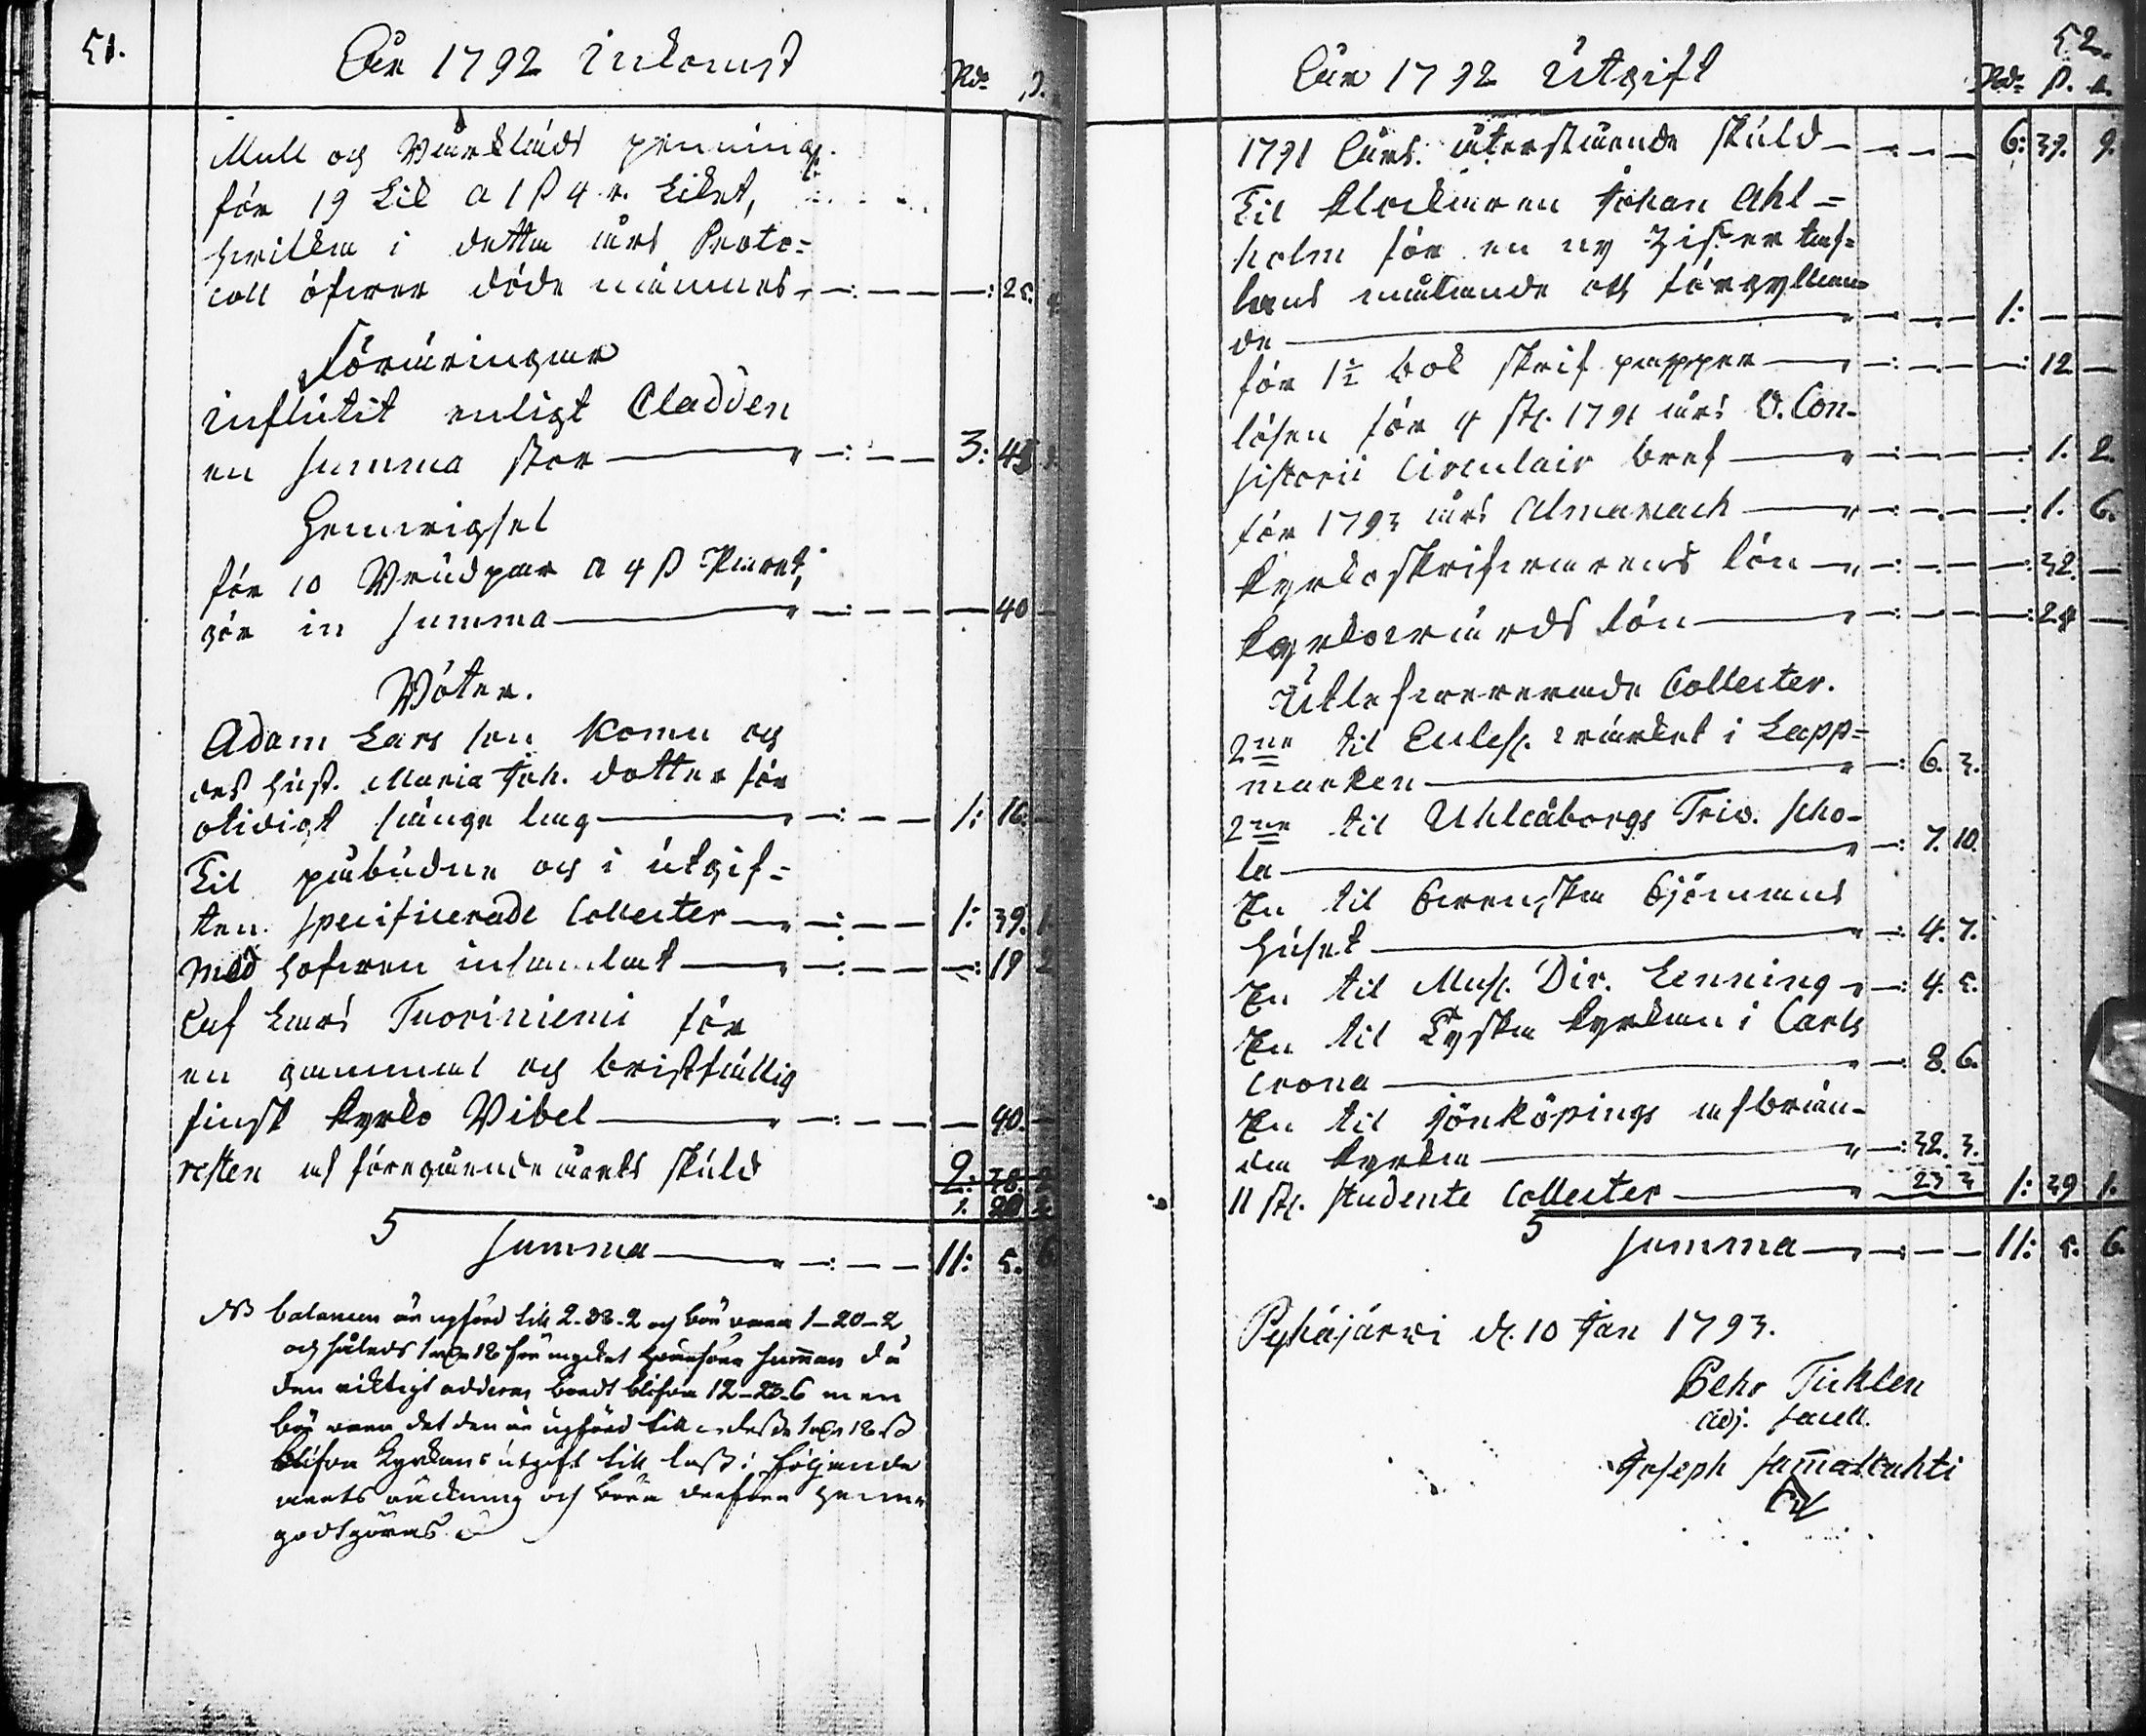 51.
År 1792 Inkomst
Rd: ß.
Mull och Bårklädes penningar
för 19 Lik a 1 ß 4 r. Liket,
hvilka i detta års Proto=
coll öfver döde nämnes — 25. 4
Föräringar
influtit enligt Cladden
en summa stor — 3: 45
Hemvigsel
för 10 Brudpar a 4 ß Paret,
gör in summa — 40 —
Böter.
Adam Lars son Komu och
des hust. Maria Joh. dotter för
otidigt sänge lag — 1: 16. —
Til påbudne och i utgif=
ten specificerade Collecter — 1: 39. 1.
Med hofven insamlat — 19 2
Af Lars Tuoriniemi för
en gammal och bristfällig
finsk kyrko Bibel — 40. —
resten af föregående årets skuld 2: 38. 2
1. 20 2.
5 Summa — 11: 5. 6
NB balancen är upförd till 2-38-2 och bör vara 1-20-2
och således 1 rd 18 för mycket
den riktigt adderas bordt blifva 12-23-6 men
bör vara det den är upförd till
blifva Kyrkans utgift till följande
årets räckning och böra derföre henne
godtgöras
52.
År 1792 Utgift
Rd: ß. r.
1791 Års. återstående skuld — 6: 39. 9.
Til Klockaren Johan Ahl=
holm för en ny Zifer taf=
lans målande och förgyllan=
de — 1: — —
för 1½ bok skrif papper — 12 —
lösen för 4 st. 1791 års V. Con-
sistorii Circulair bref — 1. 2.
för 1793 års Almanach — 1. 6.
Kyrkoskrifvarens lön — 32. —
Kyrkovärds lön — 24 —
Utlefvererade Collecter.
2ne til Eccles. värket i Lapp=
marken — 6. 3.
2ne til Uhleåborgs Triv. Scho-
la — 7. 10.
En til Svenska Sjömans
huset — 4. 7.
En til Mus. Dir. Lenning — 4. 5.
En til Tyska kyrkan i Carls
crona — 8. 6.
En til Jönköpings afbrän-
da kyrka — 32. 3.
11 st. Studente Collecter — 23 3 1: 39 1.
5 Summa — 11: 5. 6.
Pyhäjärvi d. 10 Jan 1793.
Pehr Ticklen
adj. Sacell.
Joseph Jämsälahti